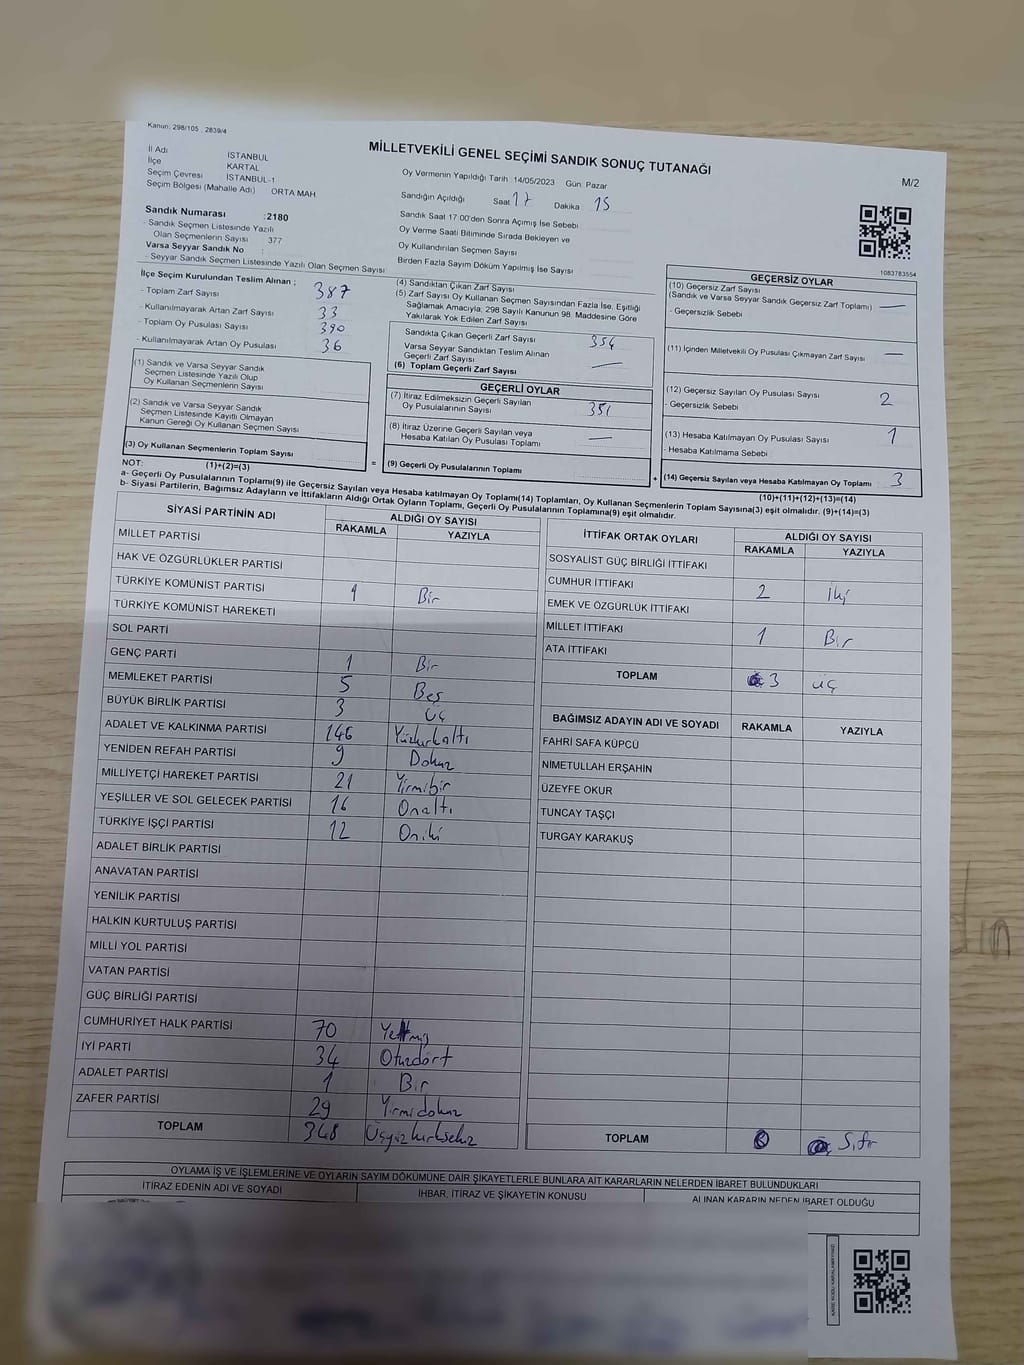 Kanun: 298/105 , 2839/4
MİLLETVEKİLİ GENEL SEÇİMİ SANDIK SONUÇ TUTANAĞI
M/2
İl Adı İSTANBUL
İlçe KARTAL
Seçim Çevresi İSTANBUL-1
Seçim Bölgesi (Mahalle Adı) ORTA MAH.
Oy Vermenin Yapıldığı Tarih 14/05/2023 Gün Pazar
Sandığın Açıldığı Saat 17 Dakika 15
Sandık Saat 17:00'den Sonra Açımış İse Sebebi
Oy Verme Saati Bitiminde Sırada Bekleyen ve
Oy Kullandırılan Seçmen Sayısı
Birden Fazla Sayım Döküm Yapılmış İse Sayısı
Sandık Numarası :2180
- Sandık Seçmen Listesinde Yazılı
Olan Seçmenlerin Sayısı 377
Varsa Seyyar Sandık No :
- Seyyar Sandık Seçmen Listesinde Yazılı Olan Seçmen Sayısı
1083783554
İlçe Seçim Kurulundan Teslim Alınan ;
- Toplam Zarf Sayısı 387
- Kullanılmayarak Artan Zarf Sayısı 33
- Toplam Oy Pusulası Sayısı 390
- Kullanılmayarak Artan Oy Pusulası 36
(1) Sandık ve Varsa Seyyar Sandık
Seçmen Listesinde Yazılı Olup
Oy Kullanan Seçmenlerin Sayısı
(2) Sandık ve Varsa Seyyar Sandık
Seçmen Listesinde Kayıtlı Olmayan
Kanun Gereği Oy Kullanan Seçmen Sayısı
(3) Oy Kullanan Seçmenlerin Toplam Sayısı
(1)+(2)=(3)
(4) Sandıktan Çıkan Zarf Sayısı
(5) Zarf Sayısı Oy Kullanan Seçmen Sayısından Fazla İse, Eşitliği
Sağlamak Amacıyla, 298 Sayılı Kanunun 98. Maddesine Göre
Yakılarak Yok Edilen Zarf Sayısı
Sandıkta Çıkan Geçerli Zarf Sayısı 354
Varsa Seyyar Sandıktan Teslim Alınan
Geçerli Zarf Sayısı —
(6) Toplam Geçerli Zarf Sayısı
GEÇERLİ OYLAR
(7) İtiraz Edilmeksizin Geçerli Sayılan
Oy Pusulalarının Sayısı 351
(8) İtiraz Üzerine Geçerli Sayılan veya
Hesaba Katılan Oy Pusulası Toplamı —
= (9) Geçerli Oy Pusulalarının Toplamı +
GEÇERSİZ OYLAR
(10) Geçersiz Zarf Sayısı
(Sandık ve Varsa Seyyar Sandık Geçersiz Zarf Toplamı) —
- Geçersizlik Sebebi
(11) İçinden Milletvekili Oy Pusulası Çıkmayan Zarf Sayısı —
(12) Geçersiz Sayılan Oy Pusulası Sayısı 2
- Geçersizlik Sebebi
(13) Hesaba Katılmayan Oy Pusulası Sayısı 1
- Hesaba Katılmama Sebebi
(14) Geçersiz Sayılan veya Hesaba Katılmayan Oy Toplamı 3
(10)+(11)+(12)+(13)=(14)
NOT:
a- Geçerli Oy Pusulalarının Toplamı(9) ile Geçersiz Sayılan veya Hesaba katılmayan Oy Toplamı(14) Toplamları, Oy Kullanan Seçmenlerin Toplam Sayısına(3) eşit olmalıdır. (9)+(14)=(3)
b- Siyasi Partilerin, Bağımsız Adayların ve İttifakların Aldığı Ortak Oyların Toplamı, Geçerli Oy Pusulalarının Toplamına(9) eşit olmalıdır.
SİYASİ PARTİNİN ADI ALDIĞI OY SAYISI
RAKAMLA YAZIYLA
MİLLET PARTİSİ
HAK VE ÖZGÜRLÜKLER PARTİSİ
TÜRKİYE KOMÜNİST PARTİSİ 1 Bir
TÜRKİYE KOMÜNİST HAREKETİ
SOL PARTİ
GENÇ PARTİ 1 Bir
MEMLEKET PARTİSİ 5 Beş
BÜYÜK BİRLİK PARTİSİ 3 Üç
ADALET VE KALKINMA PARTİSİ 146 Yüzkırkaltı
YENİDEN REFAH PARTİSİ 9 Dokuz
MİLLİYETÇİ HAREKET PARTİSİ 21 Yirmibir
YEŞİLLER VE SOL GELECEK PARTİSİ 16 Onaltı
TÜRKİYE İŞÇİ PARTİSİ 12 Oniki
ADALET BİRLİK PARTİSİ
ANAVATAN PARTİSİ
YENİLİK PARTİSİ
HALKIN KURTULUŞ PARTİSİ
MİLLİ YOL PARTİSİ
VATAN PARTİSİ
GÜÇ BİRLİĞİ PARTİSİ
CUMHURİYET HALK PARTİSİ 70 Yetmiş
İYİ PARTİ 34 Otuzdört
ADALET PARTİSİ 1 Bir
ZAFER PARTİSİ 29 Yirmidokuz
TOPLAM 348 Üçyüzkırksekiz
İTTİFAK ORTAK OYLARI ALDIĞI OY SAYISI
RAKAMLA YAZIYLA
SOSYALİST GÜÇ BİRLİĞİ İTTİFAKI
CUMHUR İTTİFAKI 2 İki
EMEK VE ÖZGÜRLÜK İTTİFAKI
MİLLET İTTİFAKI 1 Bir
ATA İTTİFAKI
TOPLAM 3 üç
BAĞIMSIZ ADAYIN ADI VE SOYADI RAKAMLA YAZIYLA
FAHRİ SAFA KÜPCÜ
NİMETULLAH ERŞAHİN
ÜZEYFE OKUR
TUNCAY TAŞÇI
TURGAY KARAKUŞ
TOPLAM Sıfır
OYLAMA İŞ VE İŞLEMLERİNE VE OYLARIN SAYIM DÖKÜMÜNE DAİR ŞİKAYETLERLE BUNLARA AİT KARARLARIN NELERDEN İBARET BULUNDUKLARI
İTİRAZ EDENİN ADI VE SOYADI İHBAR, İTİRAZ VE ŞİKAYETİN KONUSU ALINAN KARARIN NEDEN İBARET OLDUĞU
KARE KODU KARALAMAYINIZ